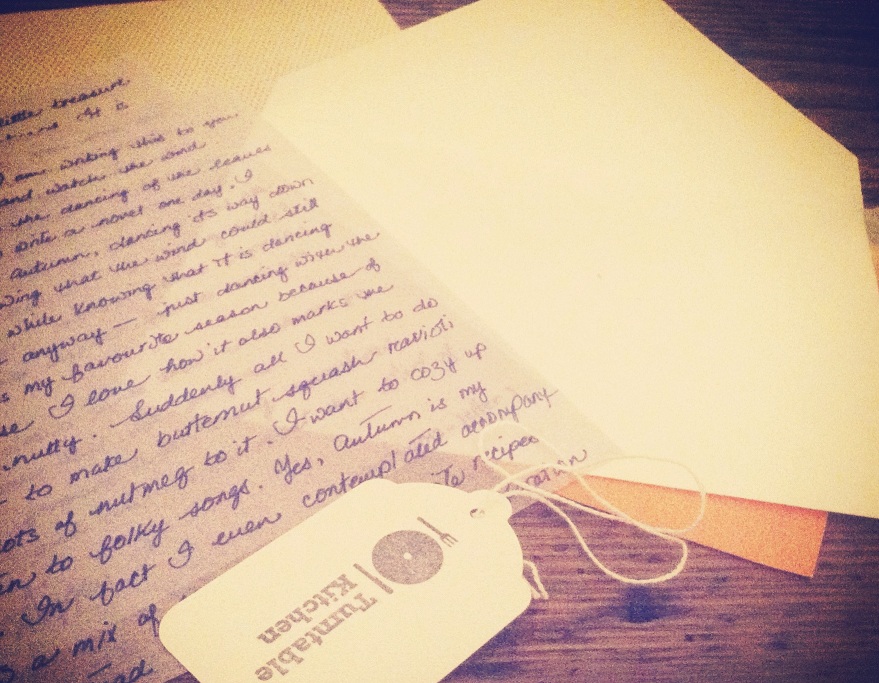 little treasure
It is
I am writing this to you
and watch the wind
the dancing of the leaves
write a novel one day. I
Autumn, dancing its way down
wing that the wind could still
while knowing that it is dancing
anyway — just dancing with the
s my favourite season because of
se I love how it also marks the
nutty. Suddenly all I want to do
to make butternut squash ravioli
lots of nutmeg to it. I want to cozy up
en to folky songs. Yes, Autumn is my
In fact I even contemplated accompany
s a mix of
recipes
ad
Turntable
Kitchen